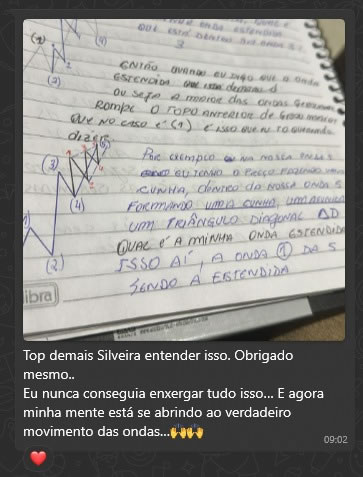 (1)
(4)
(2)
QUE ESTÁ DENTRO DA ONDA 5?
ENTÃO QUANDO EU DIGO QUE A ONDA
ESTENDIDA
OU SEJA A MAIOR DAS ONDAS
ROMPE O TOPO ANTERIOR DE
QUE NO CASO É (1) É ISSO QUE EU TO QUERENDO
dizer
(3)
(4)
(2)
POR EXEMPLO EU NA NOSSA ONDA 5
EU TENHO O PREÇO FAZENDO UMA
CUNHA, DENTRO DA NOSSA ONDA 5
FORMANDO UMA CUNHA, UMA
UM TRIÂNGULO DIAGONAL
QUAL É A MINHA ONDA ESTENDIDA
ISSO AÍ, A ONDA ① DA 5
SENDO A ESTENDIDA
libra
Top demais Silveira entender isso. Obrigado
mesmo..
Eu nunca conseguia enxergar tudo isso... E agora
minha mente está se abrindo ao verdadeiro
movimento das ondas...🙌🙌
09:02